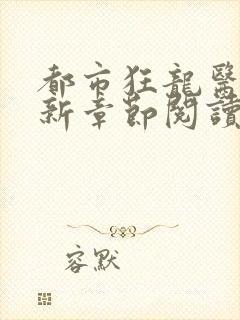 都市狂龍醫
新章節閱讀
容默